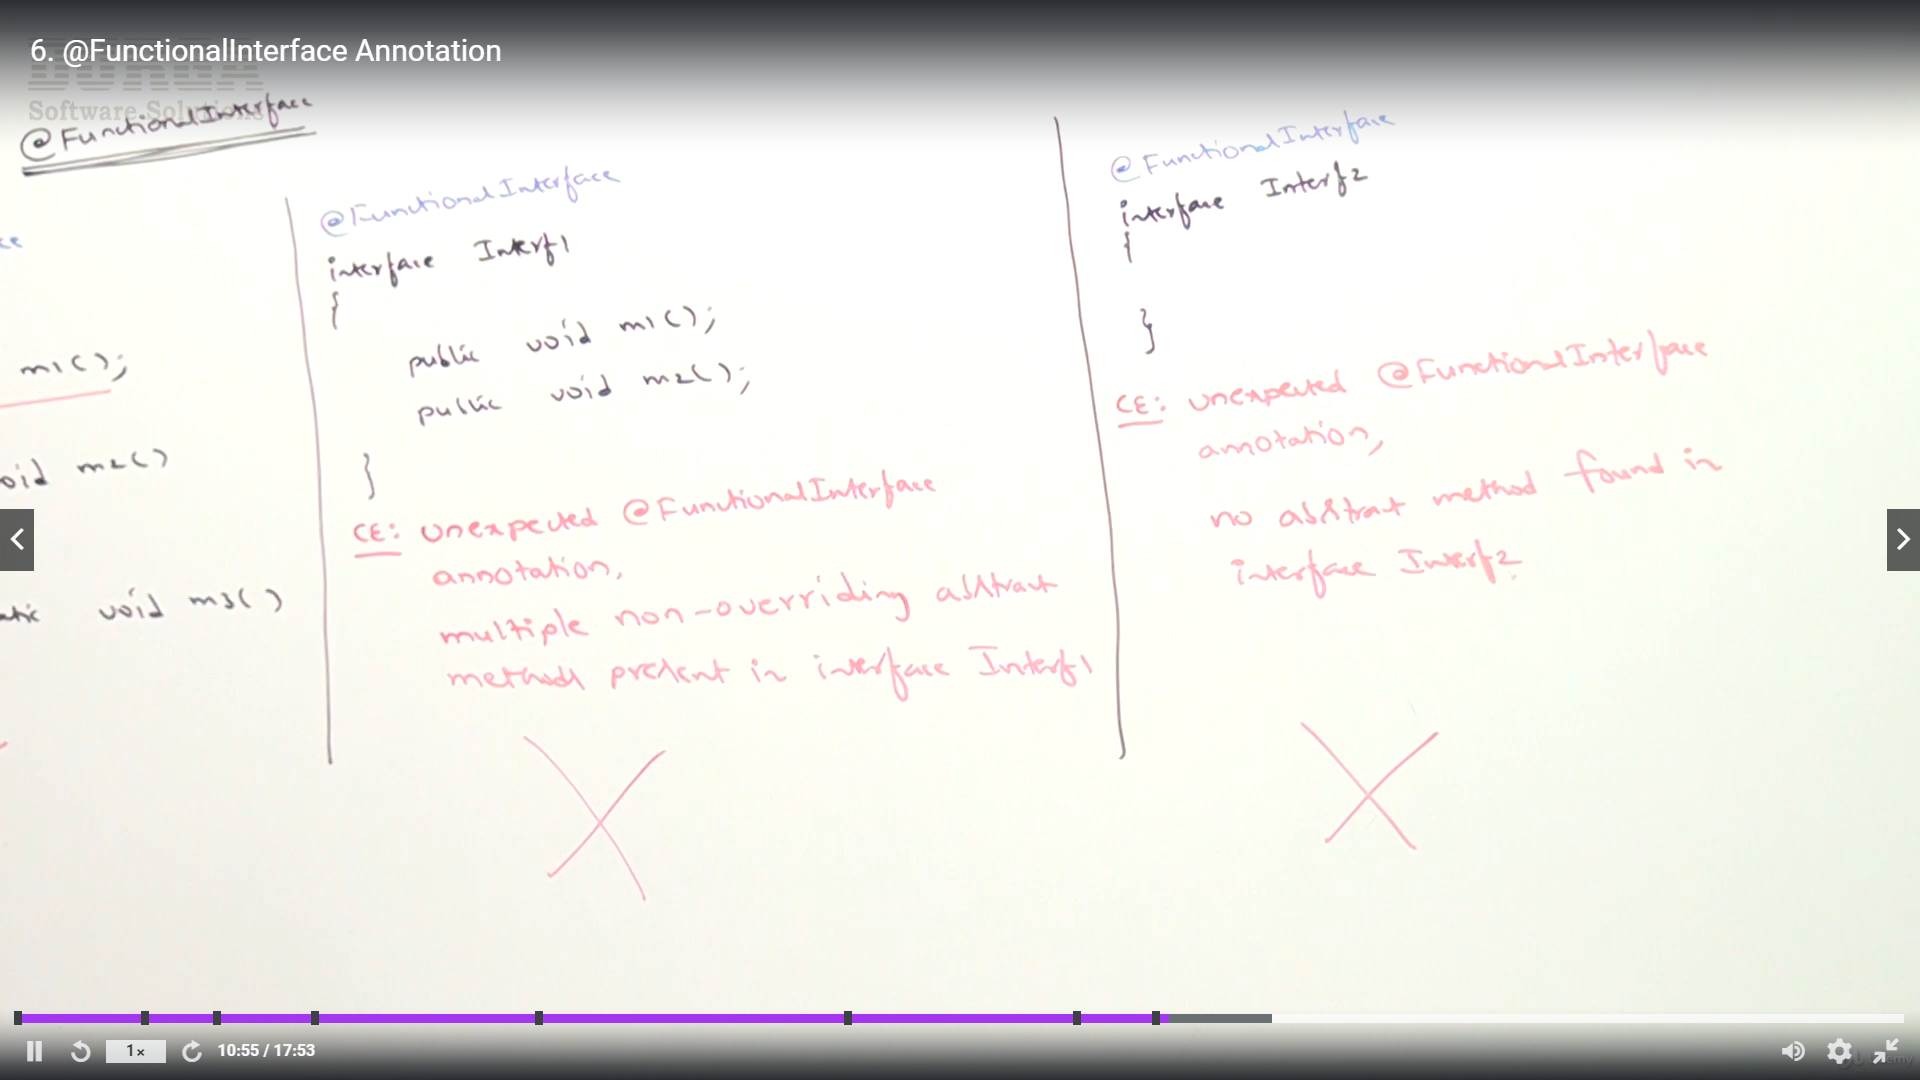 6. @FunctionalInterface Annotation
DURGA
Software Solutions
@FunctionalInterface
ce
m1();
oid m2()
atic void m3()
@FunctionalInterface
interface Interf1
{
public void m1();
public void m2();
}
CE: unexpected @FunctionalInterface
annotation,
multiple non-overriding abstract
methods present in interface Interf1
@FunctionalInterface
interface Interf2
{
}
CE: unexpected @FunctionalInterface
annotation,
no abstract method found in
interface Interf2
1x
10:55 / 17:53